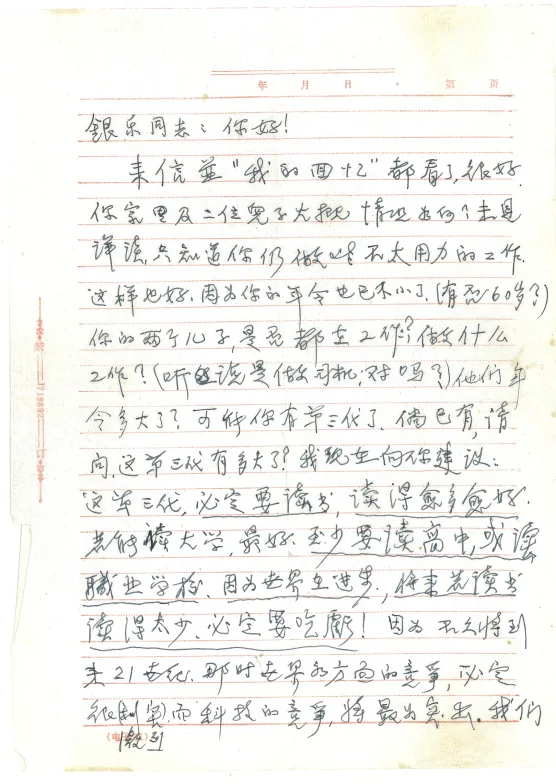 年 月 日 第 页
銀乐同志：你好！
来信並“我的回忆”都看了，很好.
你家里及二位兒子大概情况如何？未見
详谈，只知道你仍做些不太用力的工作.
这样也好，因为你的年令也已不小了.(有否60岁了)
你的两个儿子，是否都在工作？做什么
工作？(听说是做司机，对吗？)他们年
令多大了？可能你有第三代了.倘已有，请
问，这第三代有多大了？我现在向你建议：
这第三代，必定要读书，读得愈多愈好.
若能读大学，最好.至少要读高中，或读
職业学校.因为世界在进步，将来若读书
读得太少.必定要吃虧！因为不久将到
来21世纪.那时世界各方面的竞爭，必定
很剧烈.而科技的竞爭，将最为突出.我们
激烈